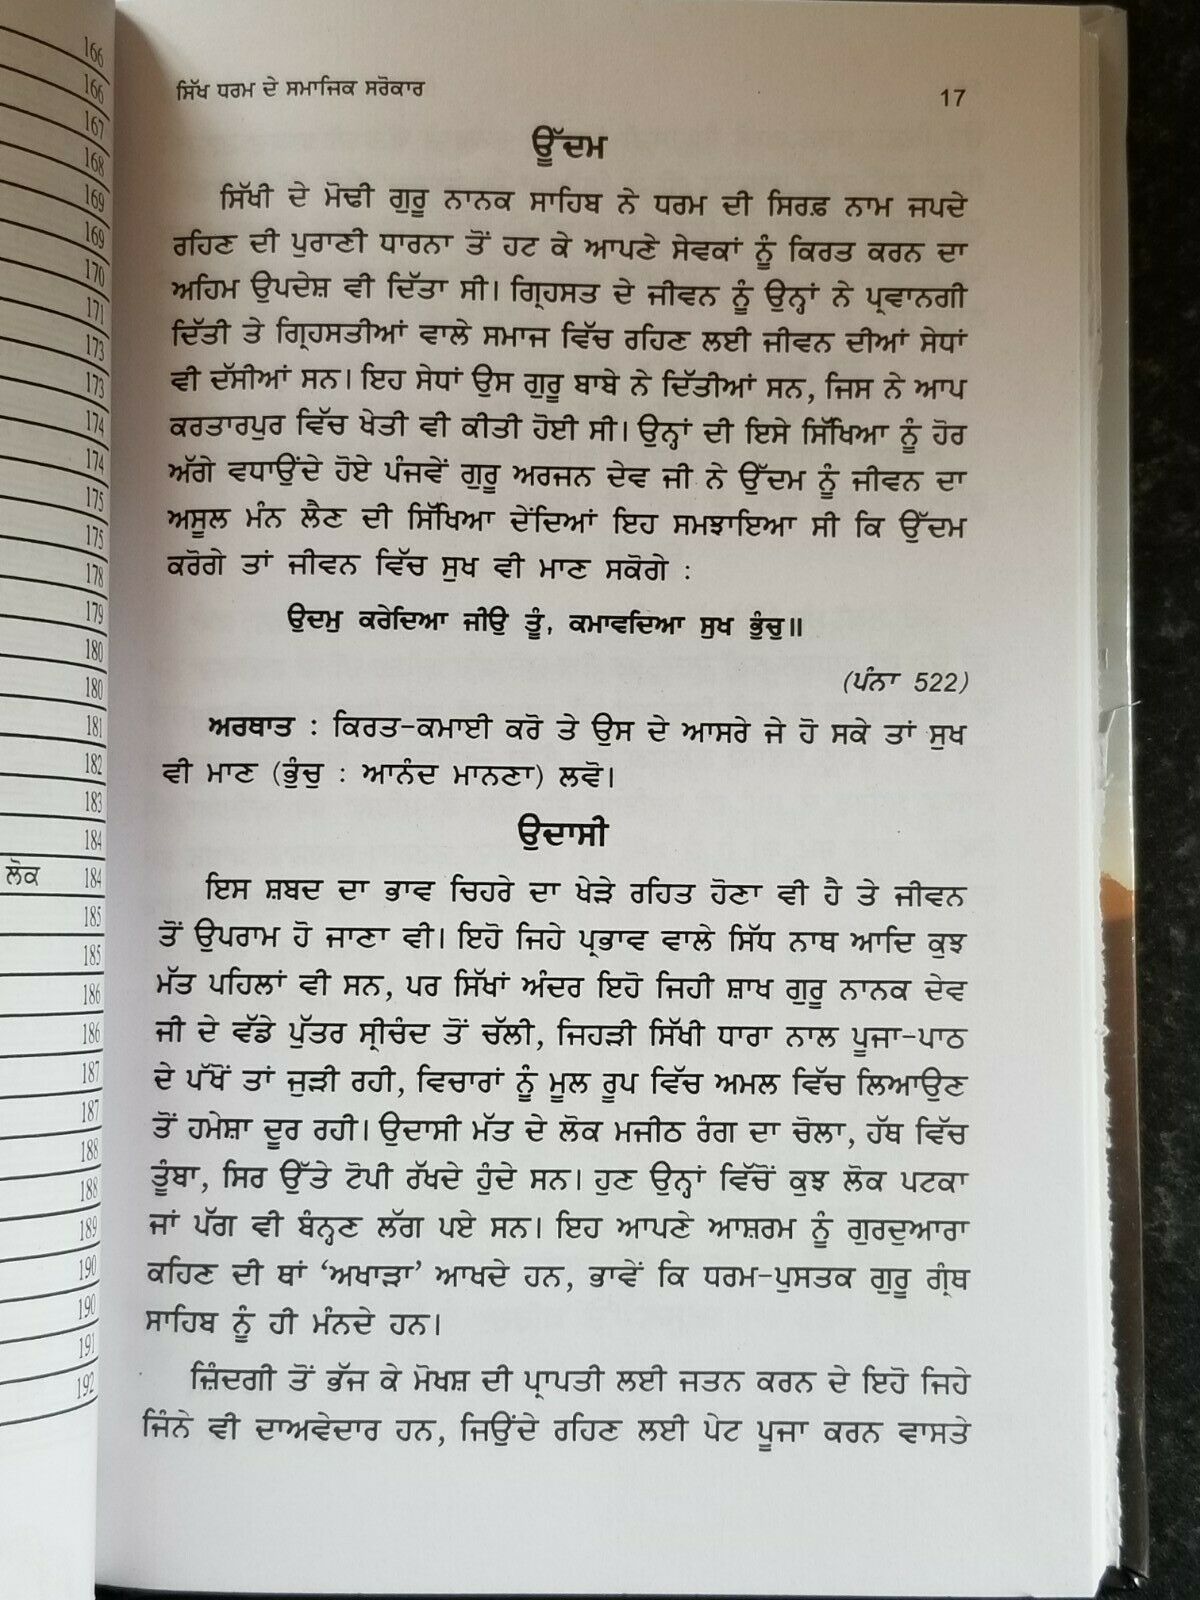 166
166
167
168
169
169
170
171
173
173
174
174
175
175
178
179
180
180
181
182
183
184
ਲੋਕ 184
185
185
186
186
187
187
188
188
189
190
190
191
192
ਸਿੱਖ ਧਰਮ ਦੇ ਸਮਾਜਿਕ ਸਰੋਕਾਰ 17
ਉੱਦਮ
ਸਿੱਖੀ ਦੇ ਮੋਢੀ ਗੁਰੂ ਨਾਨਕ ਸਾਹਿਬ ਨੇ ਧਰਮ ਦੀ ਸਿਰਫ਼ ਨਾਮ ਜਪਦੇ
ਰਹਿਣ ਦੀ ਪੁਰਾਣੀ ਧਾਰਨਾ ਤੋਂ ਹਟ ਕੇ ਆਪਣੇ ਸੇਵਕਾਂ ਨੂੰ ਕਿਰਤ ਕਰਨ ਦਾ
ਅਹਿਮ ਉਪਦੇਸ਼ ਵੀ ਦਿੱਤਾ ਸੀ। ਗ੍ਰਿਹਸਤ ਦੇ ਜੀਵਨ ਨੂੰ ਉਨ੍ਹਾਂ ਨੇ ਪ੍ਰਵਾਨਗੀ
ਦਿੱਤੀ ਤੇ ਗ੍ਰਿਹਸਤੀਆਂ ਵਾਲੇ ਸਮਾਜ ਵਿੱਚ ਰਹਿਣ ਲਈ ਜੀਵਨ ਦੀਆਂ ਸੇਧਾਂ
ਵੀ ਦੱਸੀਆਂ ਸਨ। ਇਹ ਸੇਧਾਂ ਉਸ ਗੁਰੂ ਬਾਬੇ ਨੇ ਦਿੱਤੀਆਂ ਸਨ, ਜਿਸ ਨੇ ਆਪ
ਕਰਤਾਰਪੁਰ ਵਿੱਚ ਖੇਤੀ ਵੀ ਕੀਤੀ ਹੋਈ ਸੀ। ਉਨ੍ਹਾਂ ਦੀ ਇਸੇ ਸਿੱਖਿਆ ਨੂੰ ਹੋਰ
ਅੱਗੇ ਵਧਾਉਂਦੇ ਹੋਏ ਪੰਜਵੇਂ ਗੁਰੂ ਅਰਜਨ ਦੇਵ ਜੀ ਨੇ ਉੱਦਮ ਨੂੰ ਜੀਵਨ ਦਾ
ਅਸੂਲ ਮੰਨ ਲੈਣ ਦੀ ਸਿੱਖਿਆ ਦੇਂਦਿਆਂ ਇਹ ਸਮਝਾਇਆ ਸੀ ਕਿ ਉੱਦਮ
ਕਰੋਗੇ ਤਾਂ ਜੀਵਨ ਵਿੱਚ ਸੁਖ ਵੀ ਮਾਣ ਸਕੋਗੇ :
ਉਦਮੁ ਕਰੇਦਿਆ ਜੀਉ ਤੂੰ, ਕਮਾਵਦਿਆ ਸੁਖ ਭੁੰਚੁ॥
(ਪੰਨਾ 522)
ਅਰਥਾਤ : ਕਿਰਤ-ਕਮਾਈ ਕਰੋ ਤੇ ਉਸ ਦੇ ਆਸਰੇ ਜੇ ਹੋ ਸਕੇ ਤਾਂ ਸੁਖ
ਵੀ ਮਾਣ (ਭੁੰਚੁ : ਆਨੰਦ ਮਾਨਣਾ) ਲਵੋ।
ਉਦਾਸੀ
ਇਸ ਸ਼ਬਦ ਦਾ ਭਾਵ ਚਿਹਰੇ ਦਾ ਖੇੜੇ ਰਹਿਤ ਹੋਣਾ ਵੀ ਹੈ ਤੇ ਜੀਵਨ
ਤੋਂ ਉਪਰਾਮ ਹੋ ਜਾਣਾ ਵੀ। ਇਹੋ ਜਿਹੇ ਪ੍ਰਭਾਵ ਵਾਲੇ ਸਿੱਧ ਨਾਥ ਆਦਿ ਕੁਝ
ਮੱਤ ਪਹਿਲਾਂ ਵੀ ਸਨ, ਪਰ ਸਿੱਖਾਂ ਅੰਦਰ ਇਹੋ ਜਿਹੀ ਸ਼ਾਖ ਗੁਰੂ ਨਾਨਕ ਦੇਵ
ਜੀ ਦੇ ਵੱਡੇ ਪੁੱਤਰ ਸ੍ਰੀਚੰਦ ਤੋਂ ਚੱਲੀ, ਜਿਹੜੀ ਸਿੱਖੀ ਧਾਰਾ ਨਾਲ ਪੂਜਾ-ਪਾਠ
ਦੇ ਪੱਖੋਂ ਤਾਂ ਜੁੜੀ ਰਹੀ, ਵਿਚਾਰਾਂ ਨੂੰ ਮੂਲ ਰੂਪ ਵਿੱਚ ਅਮਲ ਵਿੱਚ ਲਿਆਉਣ
ਤੋਂ ਹਮੇਸ਼ਾ ਦੂਰ ਰਹੀ। ਉਦਾਸੀ ਮੱਤ ਦੇ ਲੋਕ ਮਜੀਠ ਰੰਗ ਦਾ ਚੋਲਾ, ਹੱਥ ਵਿੱਚ
ਤੂੰਬਾ, ਸਿਰ ਉੱਤੇ ਟੋਪੀ ਰੱਖਦੇ ਹੁੰਦੇ ਸਨ। ਹੁਣ ਉਨ੍ਹਾਂ ਵਿੱਚੋਂ ਕੁਝ ਲੋਕ ਪਟਕਾ
ਜਾਂ ਪੱਗ ਵੀ ਬੰਨ੍ਹਣ ਲੱਗ ਪਏ ਸਨ। ਇਹ ਆਪਣੇ ਆਸ਼ਰਮ ਨੂੰ ਗੁਰਦੁਆਰਾ
ਕਹਿਣ ਦੀ ਥਾਂ ‘ਅਖਾੜਾ’ ਆਖਦੇ ਹਨ, ਭਾਵੇਂ ਕਿ ਧਰਮ-ਪੁਸਤਕ ਗੁਰੂ ਗ੍ਰੰਥ
ਸਾਹਿਬ ਨੂੰ ਹੀ ਮੰਨਦੇ ਹਨ।
ਜ਼ਿੰਦਗੀ ਤੋਂ ਭੱਜ ਕੇ ਮੋਖਸ਼ ਦੀ ਪ੍ਰਾਪਤੀ ਲਈ ਜਤਨ ਕਰਨ ਦੇ ਇਹੋ ਜਿਹੇ
ਜਿੰਨੇ ਵੀ ਦਾਅਵੇਦਾਰ ਹਨ, ਜਿਉਂਦੇ ਰਹਿਣ ਲਈ ਪੇਟ ਪੂਜਾ ਕਰਨ ਵਾਸਤੇ